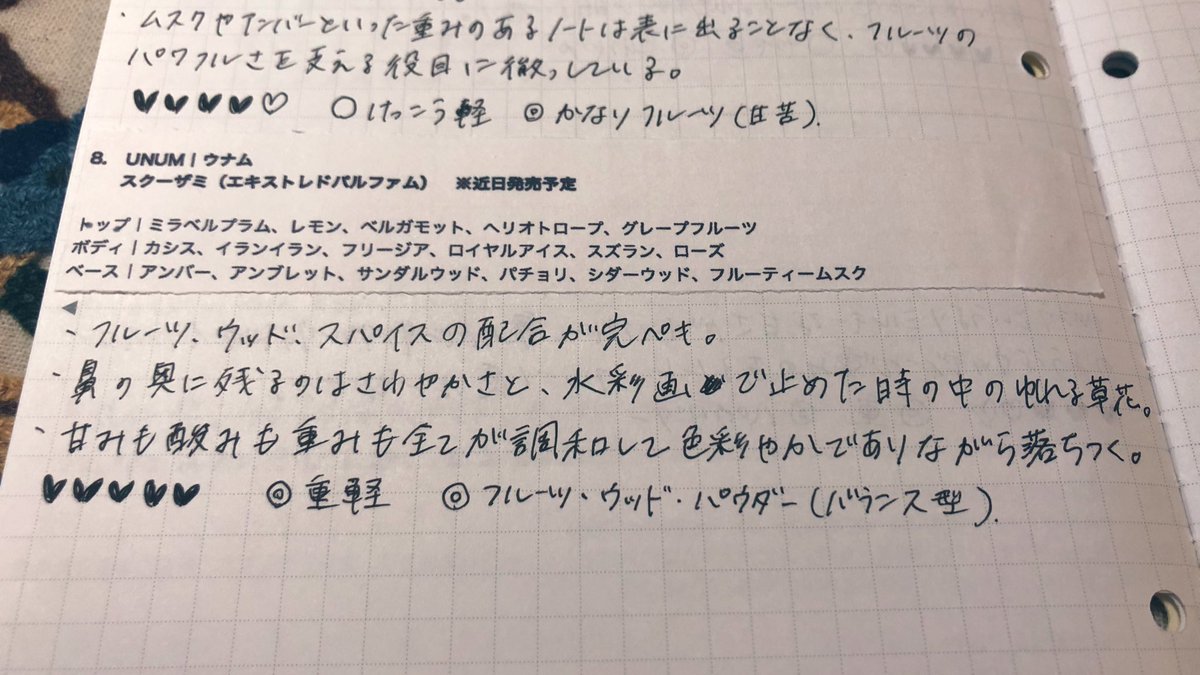 ・ムスクやアンバーといった重みのあるノートは表に出ることなく、フルーツの
パワフルさを支える役目に徹っしている。
♥♥♥♥♡ ○けっこう軽 ◎かなりフルーツ(甘苦).
8. UNUM | ウナム
スクーザミ（エキストレドパルファム） ※近日発売予定
トップ | ミラベルプラム、レモン、ベルガモット、ヘリオトロープ、グレープフルーツ
ボディ | カシス、イランイラン、フリージア、ロイヤルアイス、スズラン、ローズ
ベース | アンバー、アンブレット、サンダルウッド、パチョリ、シダーウッド、フルーティームスク
・フルーツ、ウッド、スパイスの配合が完ペき。
・鼻の奥に残るのはさわやかさと、水彩画で止めた時の中のゆれる草花。
・甘みも酸みも重みも全てが調和して色彩やかでありながら落ちつく。
♥♥♥♥♥ ◎重軽 ◎フルーツ・ウッド・パウダー(バランス型).